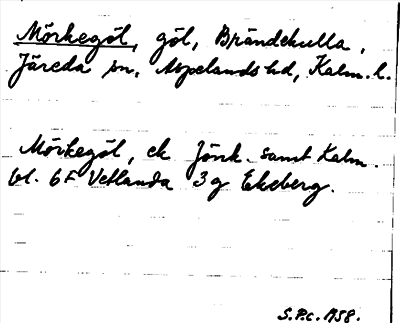 Mörkegöl, göl, Brändekulla,
Järeda sn, Aspelands hd, Kalm. l.
Mörkegöl, ek Jönk. samt Kalm.
bl. 6F Vetlanda 3g Ekeberg.
S.P.c. 1958.